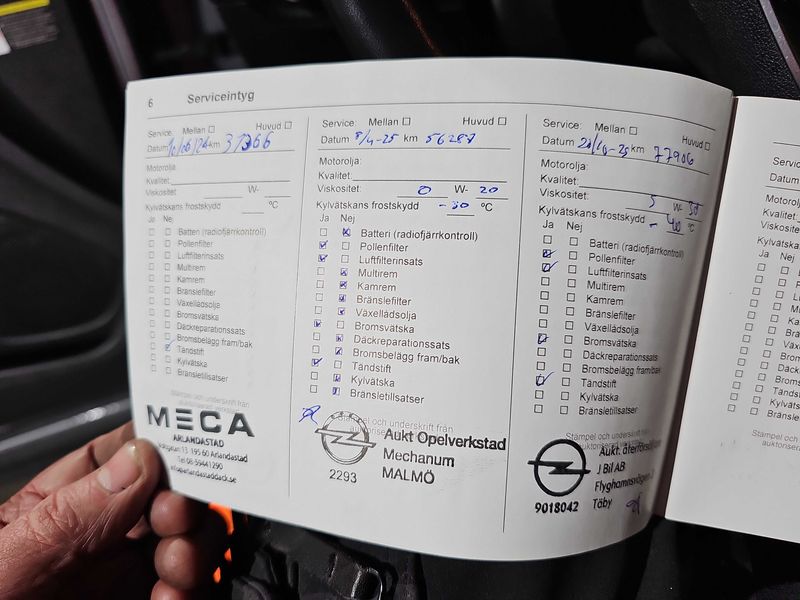 6 Serviceintyg
Service: Mellan ☐ Huvud ☐
Datum 12/06/24 km 37366
Motorolja:
Kvalitet:
Viskositet: W-
Kylvätskans frostskydd °C
Ja Nej
Batteri (radiofjärrkontroll)
Pollenfilter
Luftfilterinsats
Multirem
Kamrem
Bränslefilter
Växellådsolja
Bromsvätska
Däckreparationssats
Bromsbelägg fram/bak
Tändstift
Kylvätska
Bränsletillsatser
Stämpel och underskrift från
auktoriserad verkstad
MECA
ARLANDASTAD
13 195 60 Arlandastad
Tel 08-59441290
Service: Mellan ☐ Huvud ☐
Datum 8/4-25 km 56287
Motorolja:
Kvalitet:
Viskositet: 0 W- 20
Kylvätskans frostskydd -30 °C
Ja Nej
Batteri (radiofjärrkontroll)
Pollenfilter
Luftfilterinsats
Multirem
Kamrem
Bränslefilter
Växellådsolja
Bromsvätska
Däckreparationssats
Bromsbelägg fram/bak
Tändstift
Kylvätska
Bränsletillsatser
Stämpel och underskrift från
Aukt Opelverkstad
Mechanum
MALMÖ
2293
Service: Mellan ☐ Huvud ☐
Datum km 77906
Motorolja:
Kvalitet:
Viskositet: 5 W- 30
Kylvätskans frostskydd - 40 °C
Ja Nej
Batteri (radiofjärrkontroll)
Pollenfilter
Luftfilterinsats
Multirem
Kamrem
Bränslefilter
Växellådsolja
Bromsvätska
Däckreparationssats
Bromsbelägg fram/bak
Tändstift
Kylvätska
Bränsletillsatser
Stämpel och underskrift
Aukt. återförsäljare
J Bil AB
Flyghamnsvägen
Täby
9018042
Datum
Motorolja
Kvalitet:
Ja Nej
Stämpel och
auktorisera